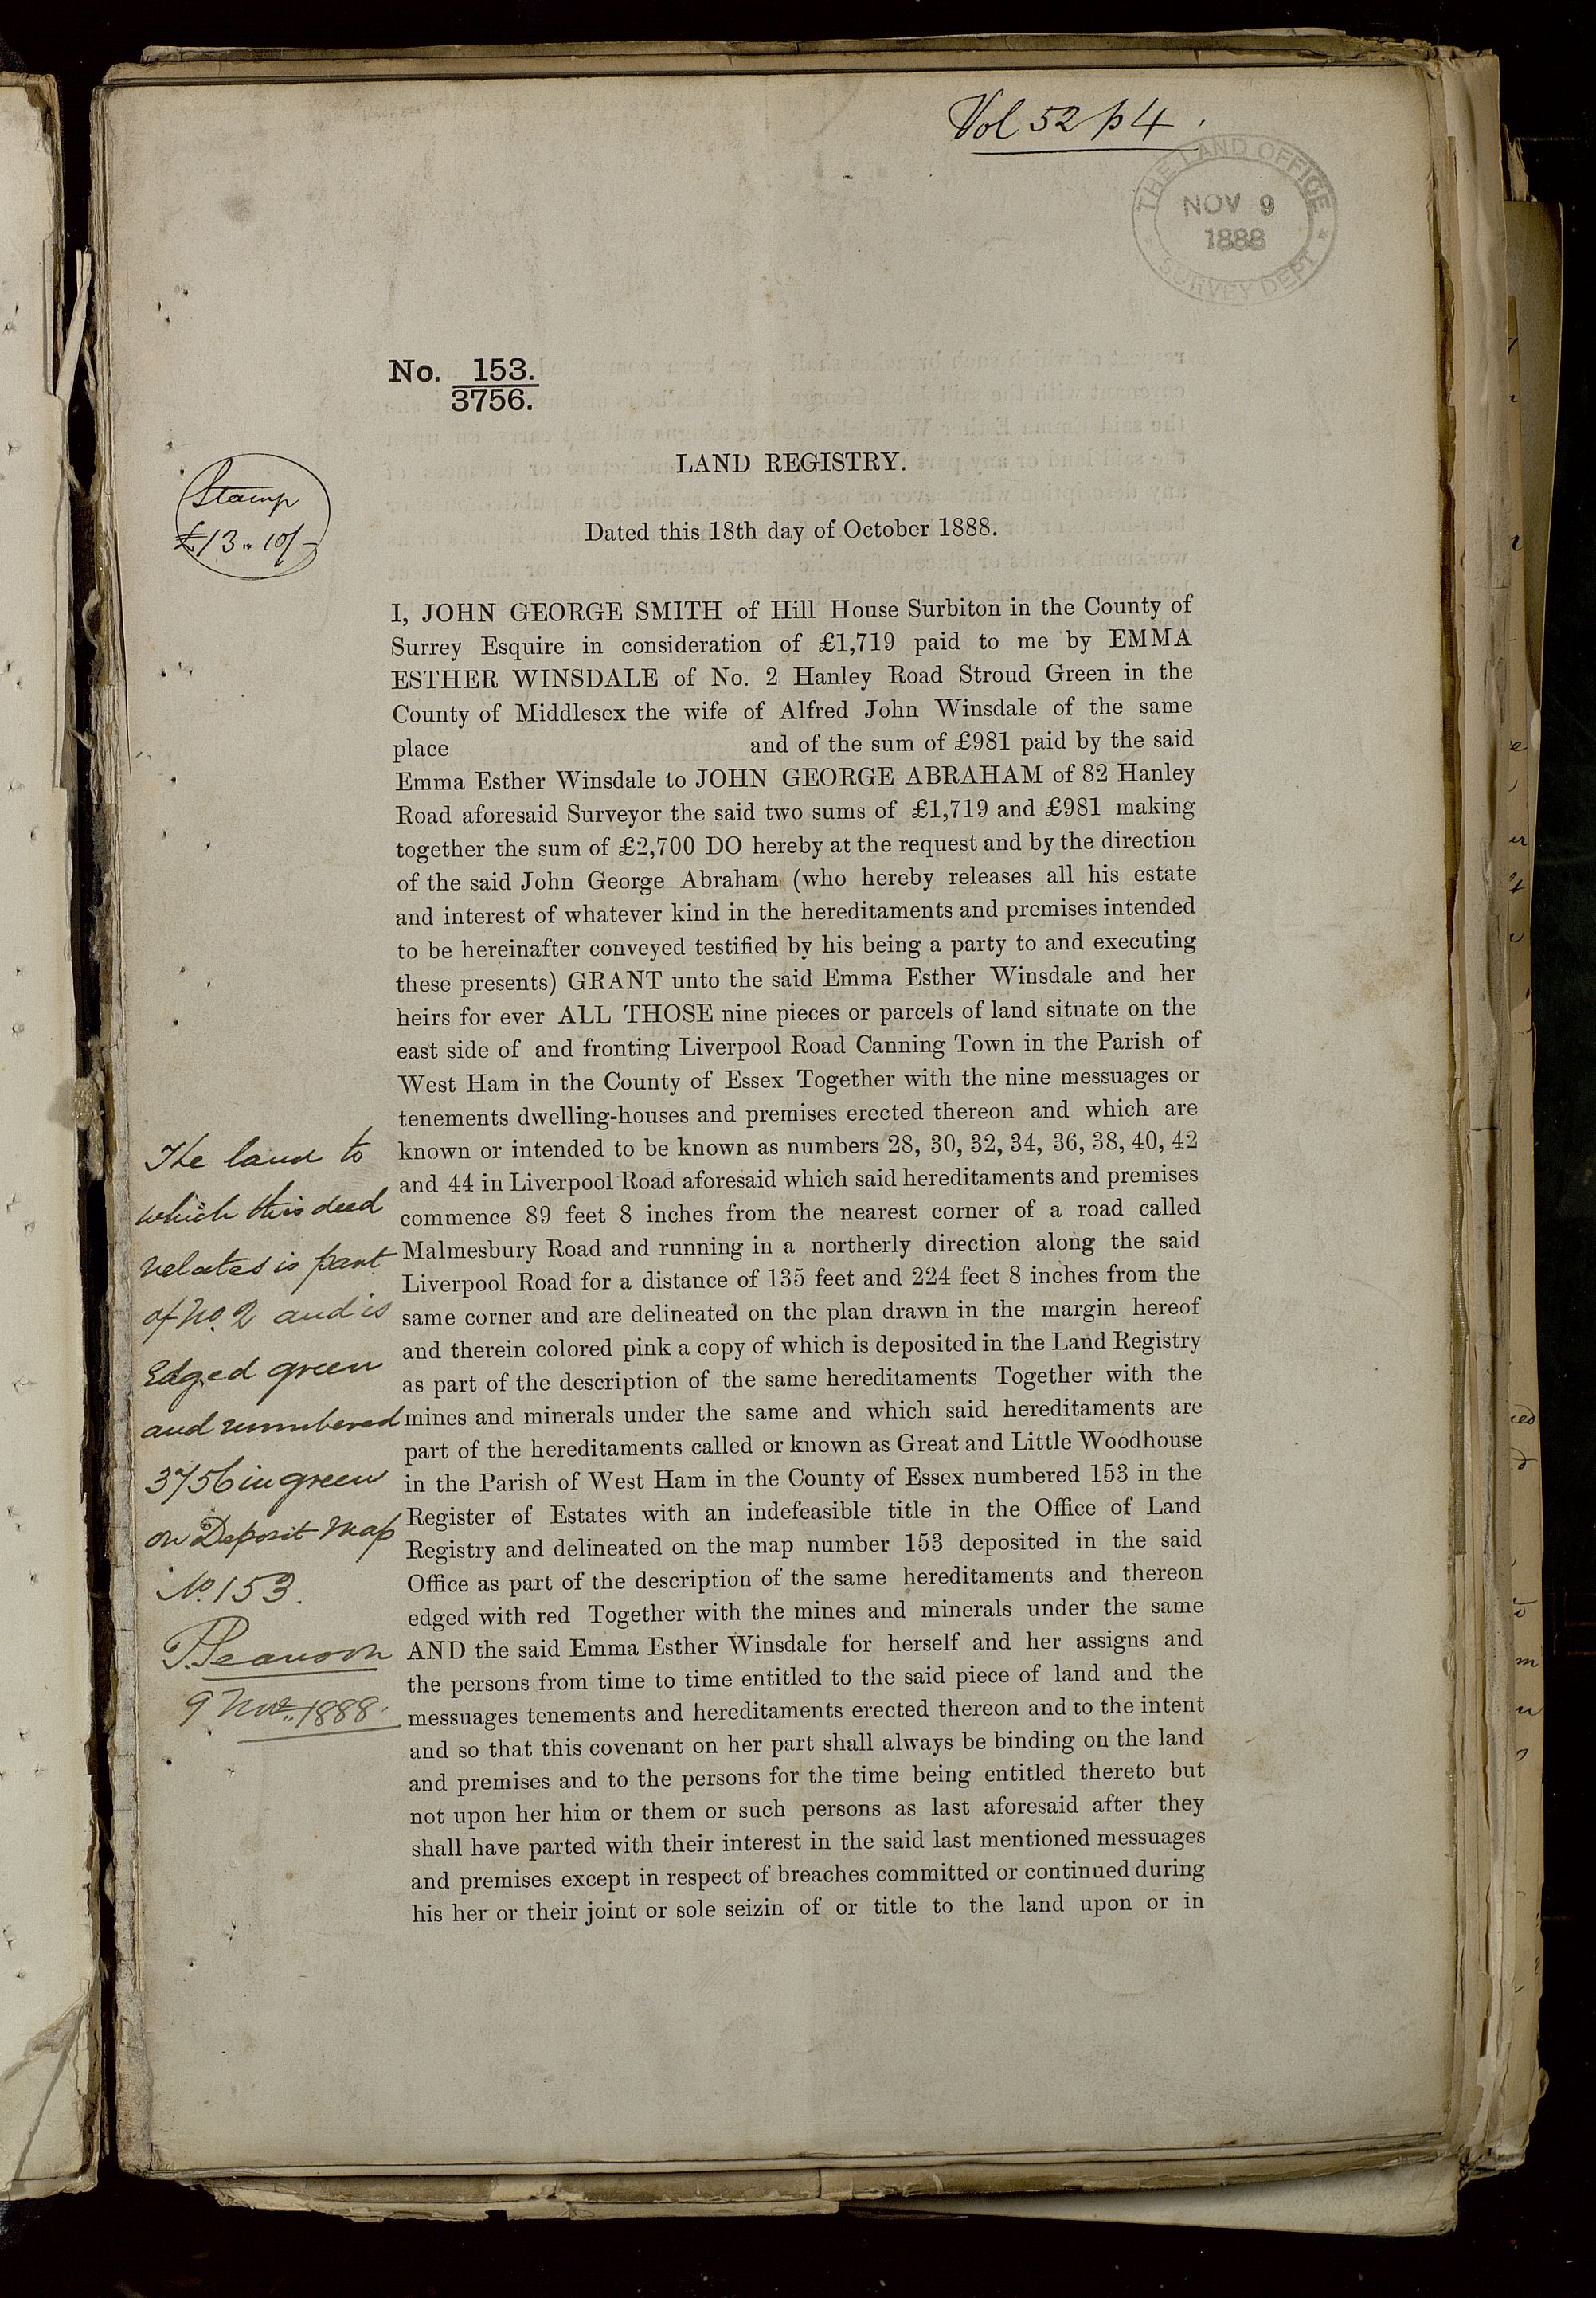 Vol 52 p 4
THE LAND OFFICE
NOV 9
1888
SURVEY DEPT
No. 153.
3756.
LAND REGISTRY.
Stamp
£13 " 10/-
Dated this 18th day of October 1888.
I, JOHN GEORGE SMITH of Hill House Surbiton in the County of
Surrey Esquire in consideration of £1,719 paid to me by EMMA
ESTHER WINSDALE of No. 2 Hanley Road Stroud Green in the
County of Middlesex the wife of Alfred John Winsdale of the same
place and of the sum of £981 paid by the said
Emma Esther Winsdale to JOHN GEORGE ABRAHAM of 82 Hanley
Road aforesaid Surveyor the said two sums of £1,719 and £981 making
together the sum of £2,700 DO hereby at the request and by the direction
of the said John George Abraham (who hereby releases all his estate
and interest of whatever kind in the hereditaments and premises intended
to be hereinafter conveyed testified by his being a party to and executing
these presents) GRANT unto the said Emma Esther Winsdale and her
heirs for ever ALL THOSE nine pieces or parcels of land situate on the
east side of and fronting Liverpool Road Canning Town in the Parish of
West Ham in the County of Essex Together with the nine messuages or
tenements dwelling-houses and premises erected thereon and which are
known or intended to be known as numbers 28, 30, 32, 34, 36, 38, 40, 42
and 44 in Liverpool Road aforesaid which said hereditaments and premises
commence 89 feet 8 inches from the nearest corner of a road called
Malmesbury Road and running in a northerly direction along the said
Liverpool Road for a distance of 135 feet and 224 feet 8 inches from the
same corner and are delineated on the plan drawn in the margin hereof
and therein colored pink a copy of which is deposited in the Land Registry
as part of the description of the same hereditaments Together with the
mines and minerals under the same and which said hereditaments are
part of the hereditaments called or known as Great and Little Woodhouse
in the Parish of West Ham in the County of Essex numbered 153 in the
Register of Estates with an indefeasible title in the Office of Land
Registry and delineated on the map number 153 deposited in the said
Office as part of the description of the same hereditaments and thereon
edged with red Together with the mines and minerals under the same
AND the said Emma Esther Winsdale for herself and her assigns and
the persons from time to time entitled to the said piece of land and the
messuages tenements and hereditaments erected thereon and to the intent
and so that this covenant on her part shall always be binding on the land
and premises and to the persons for the time being entitled thereto but
not upon her him or them or such persons as last aforesaid after they
shall have parted with their interest in the said last mentioned messuages
and premises except in respect of breaches committed or continued during
his her or their joint or sole seizin of or title to the land upon or in
The land to
which this deed
relates is part
of No. 2 and is
Edged green
and numbered
3756 in green
on Deposit Map
No. 153.
Pearson
9 Nov. 1888.